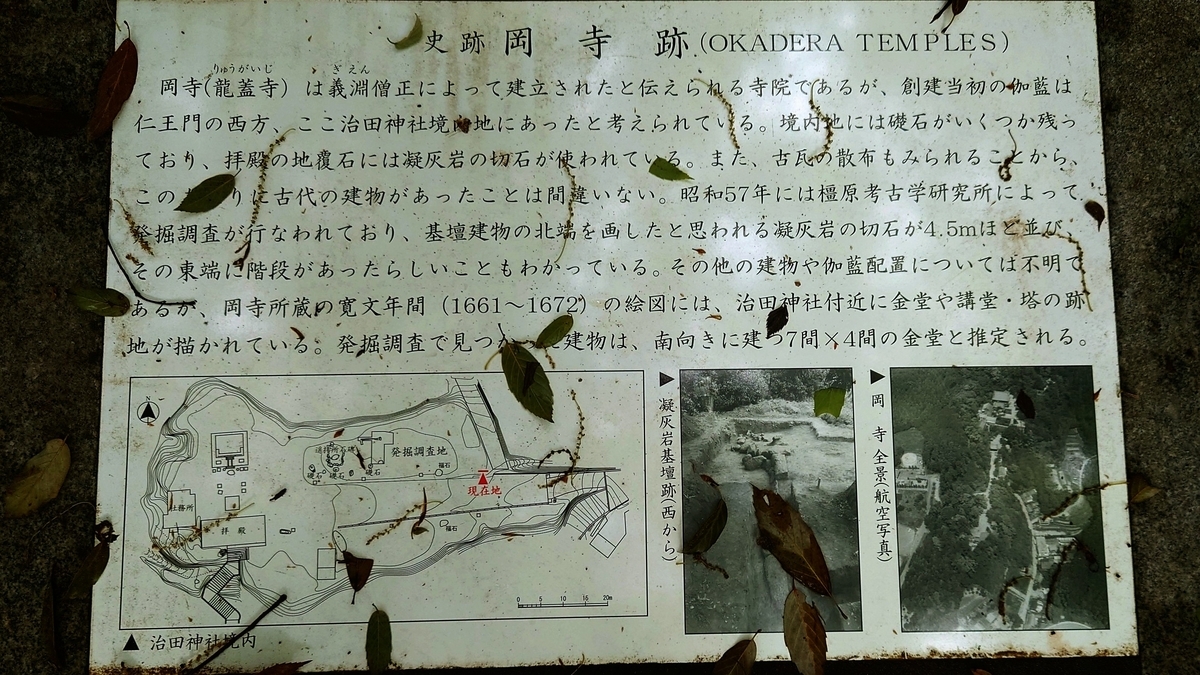 史跡 岡寺跡(OKADERA TEMPLES)
りゅうがいじ ぎえん
岡寺(龍蓋寺)は義淵僧正によって建立されたと伝えられる寺院であるが、創建当初の伽藍は
仁王門の西方、ここ治田神社境内地にあったと考えられている。境内地には礎石がいくつか残っ
ており、拝殿の地覆石には凝灰岩の切石が使われている。また、古瓦の散布もみられることから、
このあたりに古代の建物があったことは間違いない。昭和57年には橿原考古学研究所によって
発掘調査が行なわれており、基壇建物の北端を画したと思われる凝灰岩の切石が4.5mほど並び、
その東端に階段があったらしいこともわかっている。その他の建物や伽藍配置については不明で
あるが、岡寺所蔵の寛文年間(1661〜1672)の絵図には、治田神社付近に金堂や講堂・塔の跡
地が描かれている。発掘調査で見つかった建物は、南向きに建つ7間×4間の金堂と推定される。
N
発掘調査地
礎石
礎石
礎石
礎石
現在地
社務所
拝殿
0 5 10 15 20m
▲ 治田神社境内
▶ 凝灰岩基壇跡(西から)
▶ 岡寺全景(航空写真)